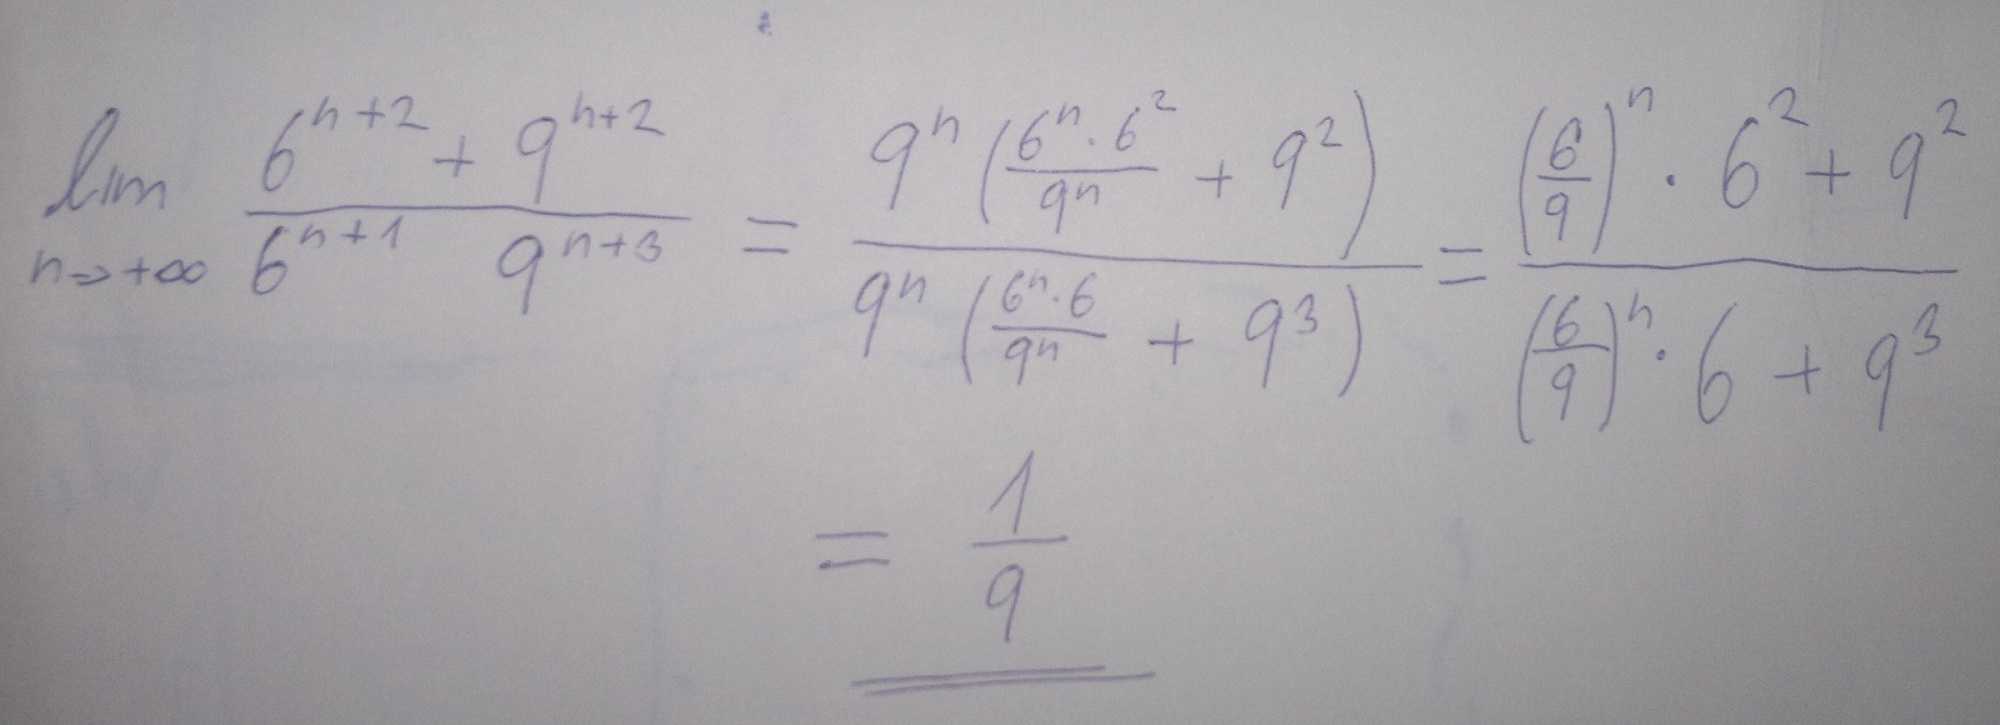 lim n→+∞ (6^(n+2) + 9^(n+2)) / (6^(n+1) 9^(n+3)) = 9^n ((6^n · 6^2)/9^n + 9^2) / 9^n ((6^n · 6)/9^n + 9^3) = ((6/9)^n · 6^2 + 9^2) / ((6/9)^n · 6 + 9^3)
= 1/9